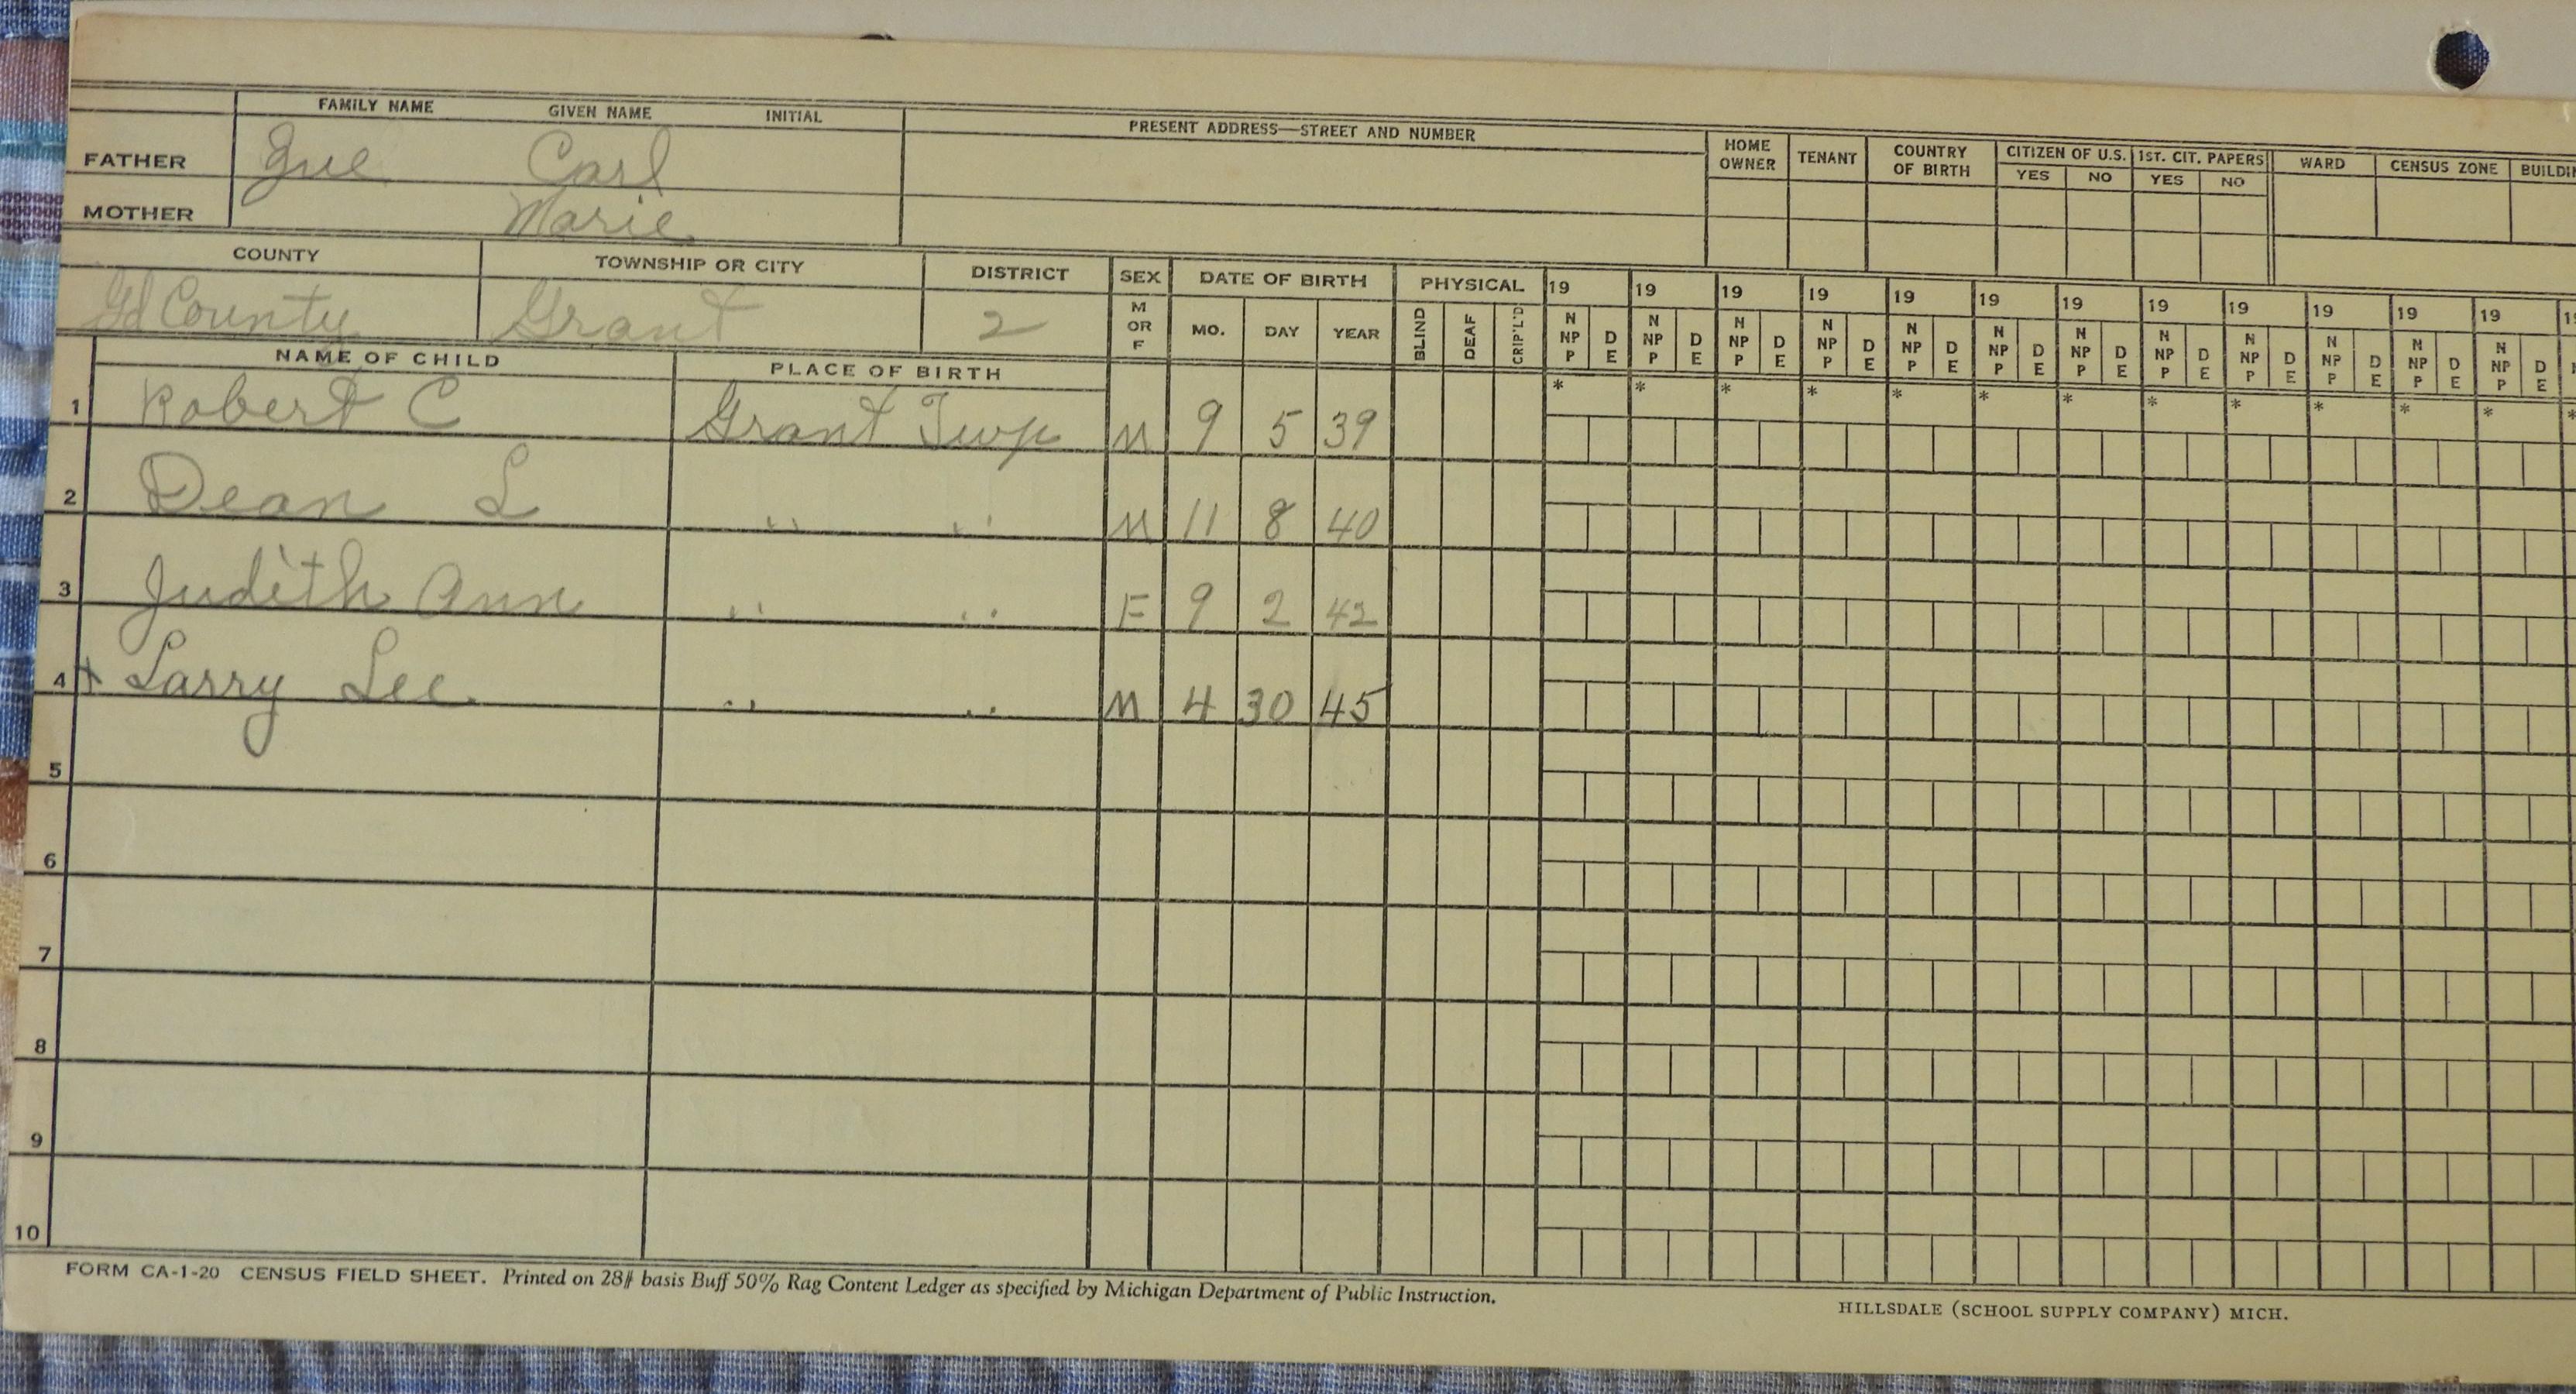 FAMILY NAME GIVEN NAME INITIAL PRESENT ADDRESS—STREET AND NUMBER HOME OWNER TENANT COUNTRY OF BIRTH CITIZEN OF U.S. YES NO 1ST. CIT. PAPERS YES NO WARD CENSUS ZONE
FATHER Carl
MOTHER Marie
COUNTY TOWNSHIP OR CITY DISTRICT SEX M OR F DATE OF BIRTH MO. DAY YEAR PHYSICAL BLIND DEAF CRIP'L'D
County Grant 2
19 19 19 19 19 19 19 19 19 19 19 19
N NP P D E N NP P D E N NP P D E N NP P D E N NP P D E N NP P D E N NP P D E N NP P D E N NP P D E N NP P D E N NP P D E N NP P D E
NAME OF CHILD PLACE OF BIRTH
* * * * * * * * * * * * *
1 Robert C Grant Twp M 9 5 39
2 Dean L " " M 11 8 40
3 Judith Ann " " F 9 2 42
4 x Larry Lee " " M 4 30 45
5
6
7
8
9
10
FORM CA-1-20 CENSUS FIELD SHEET. Printed on 28# basis Buff 50% Rag Content Ledger as specified by Michigan Department of Public Instruction.
HILLSDALE (SCHOOL SUPPLY COMPANY) MICH.